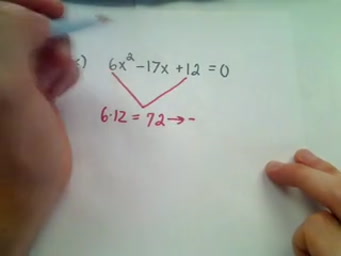 c) 6x²-17x+12=0
6·12=72→-